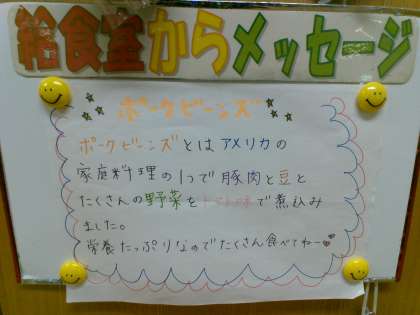 給食室からメッセージ
ポークビーンズ
ポークビーンズとはアメリカの
家庭料理の1つで豚肉と豆と
たくさんの野菜をトマト味で煮込み
ました。
栄養たっぷりなのでたくさん食べてねー